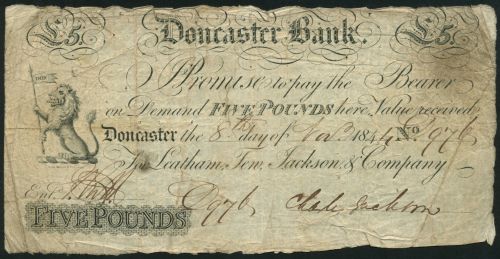 £5. Doncaster Bank. £5.
I Promise to pay the Bearer
on Demand FIVE POUNDS here Value received
Doncaster the 8th day of Novr 1844 No. D976
For Leatham, Tew, Jackson, & Company
Entd.
D976 Chas. Jackson
FIVE POUNDS